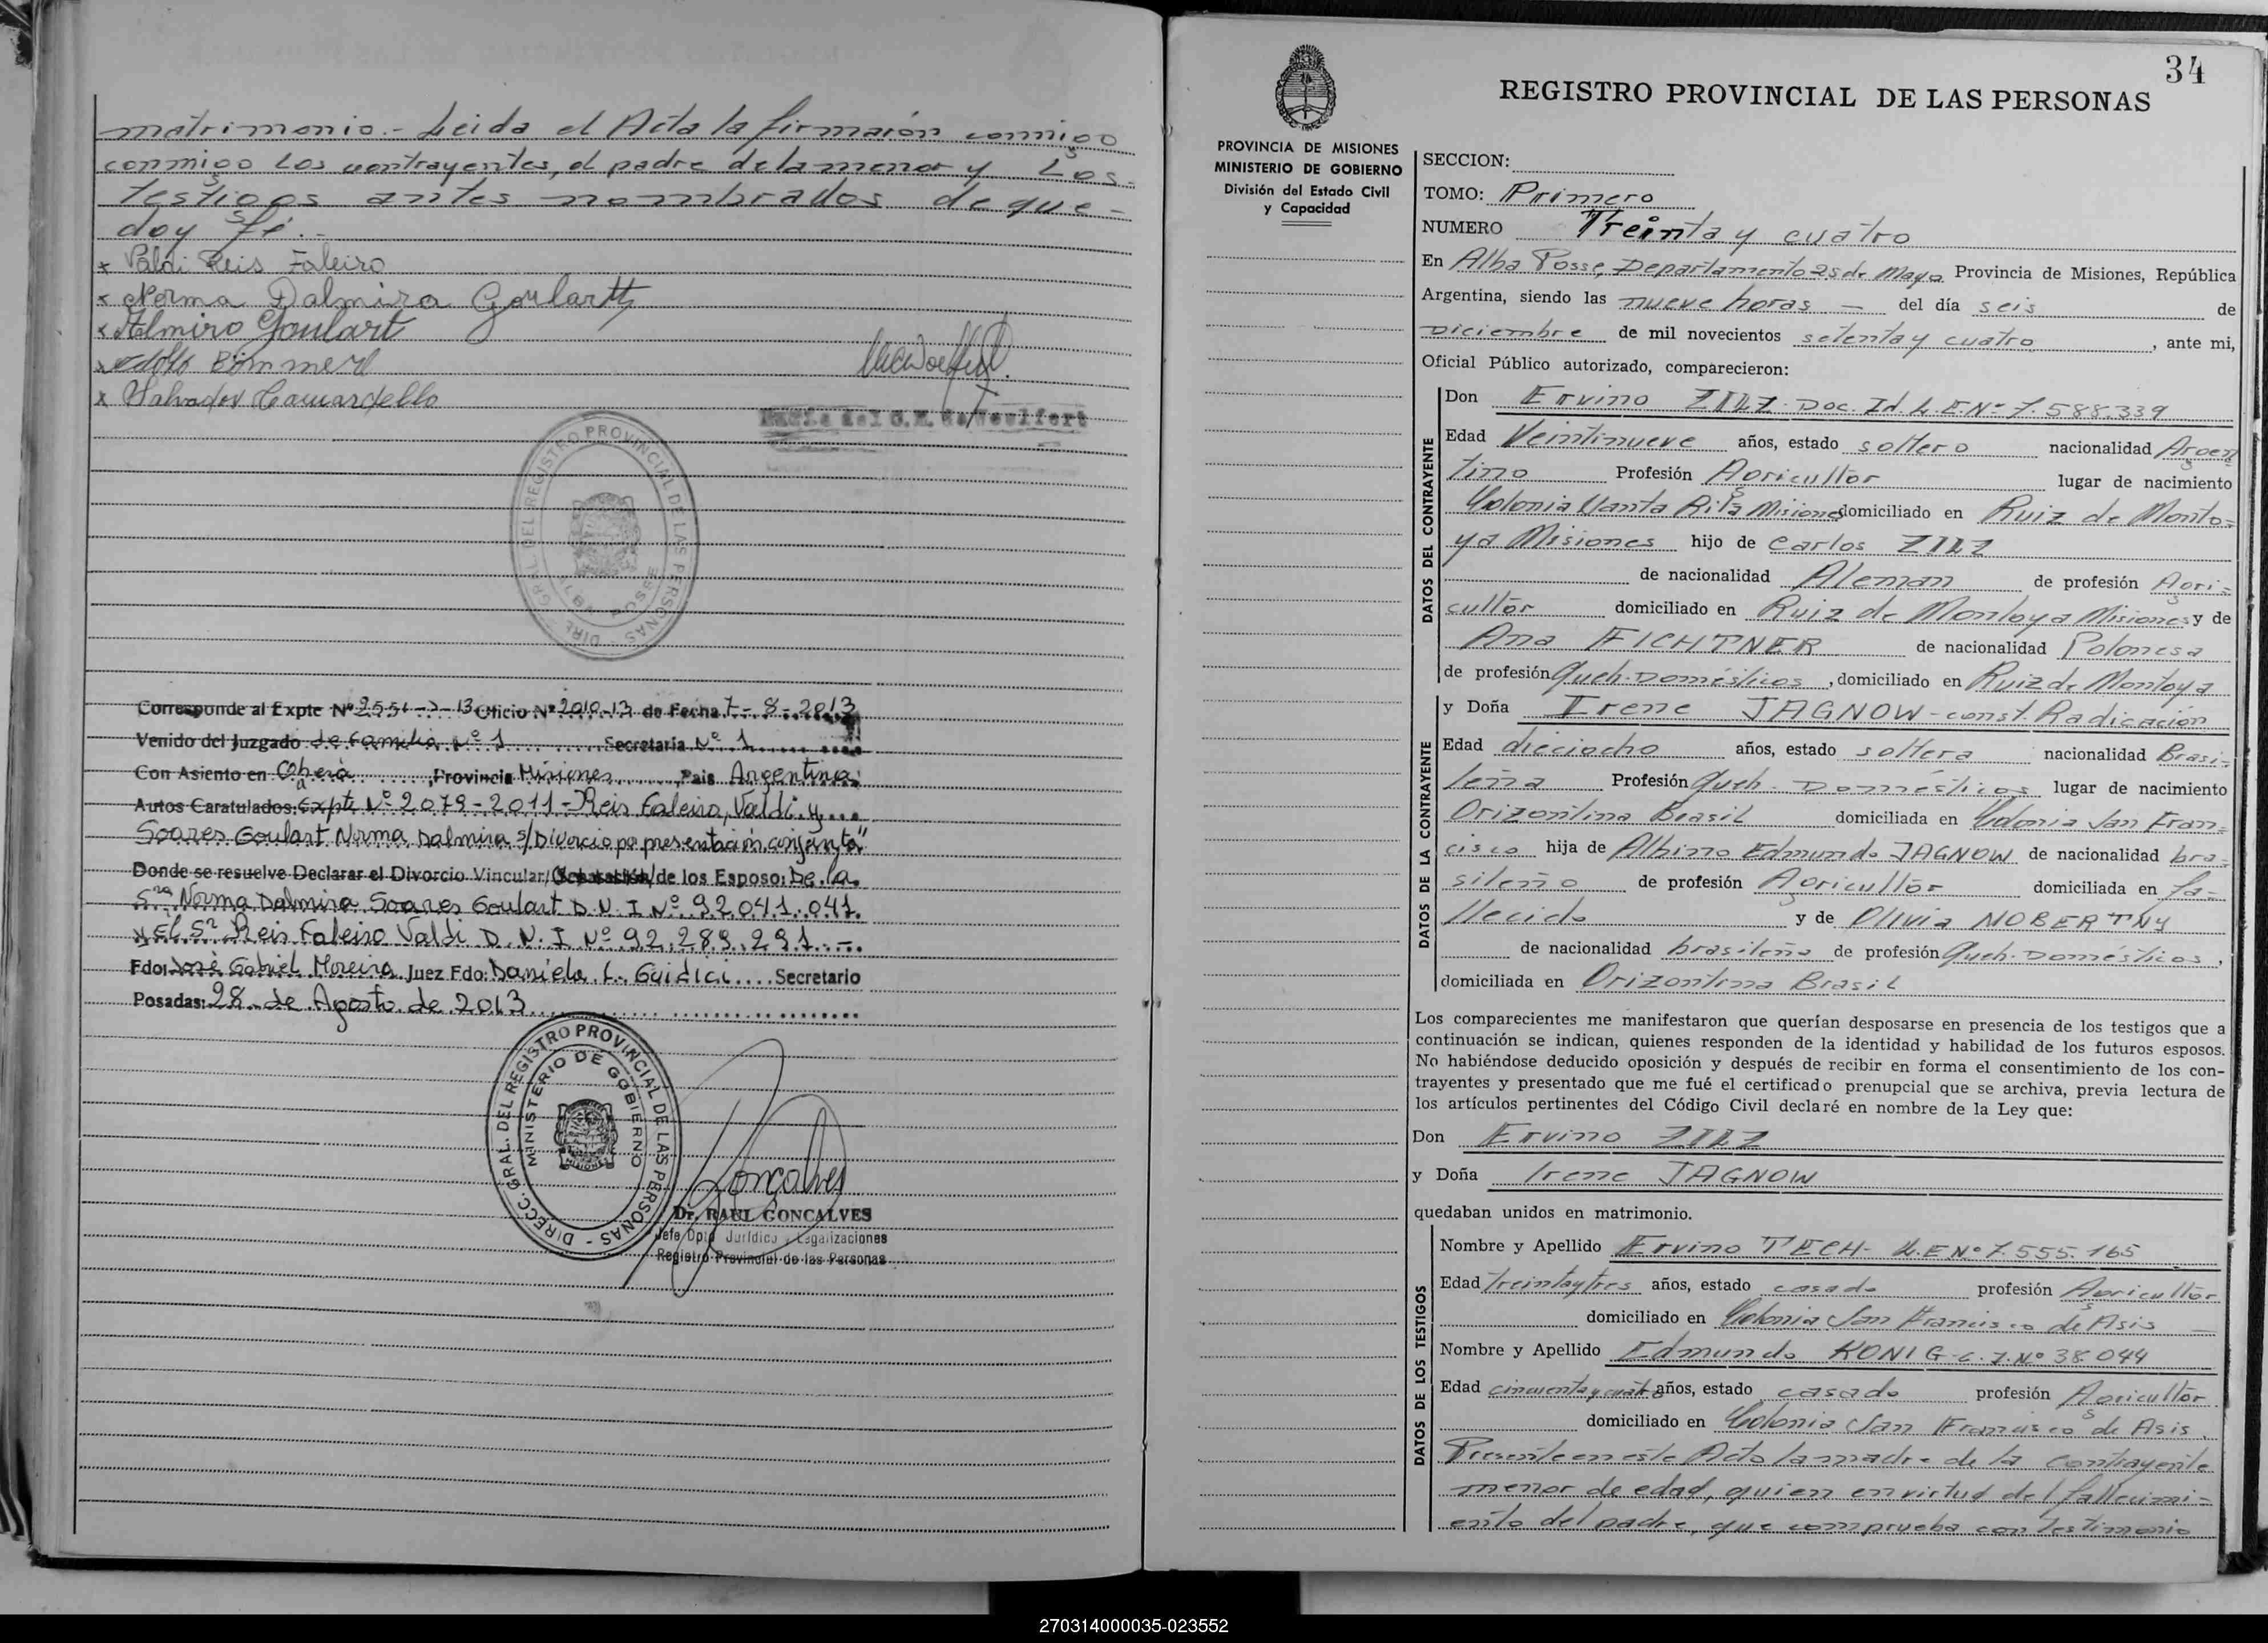 matrimonio.- Leida el Acta la firmarón conmigo
conmigo los contrayentes, el padre de la menor y los
testigos antes nombrados de que-
doy fé.-
x Valdi Reis Faleiro
x Norma Dalmira Goulartt
x Almiro Goulart
x Adolfo Bommer
x Salvador Camardello
María del C.M. de Woelfert
DIREC. GRAL. DEL REGISTRO PROVINCIAL DE LAS PERSONAS
ALBA POSSE
Corresponde al Expte Nº 2551-J-13 Oficio Nº 2010-13 de Fecha 7-8-2013
Venido del Juzgado de Familia Nº 1 Secretaría Nº 1
Con Asiento en Oberá, Provincia Misiones País Argentina
Autos Caratulados: Expte Nº 2079-2011-Reis Faleiro, Valdi y
Soares Goulart Norma Dalmira s/Divorcio por presentación conjunta"
Donde se resuelve Declarar el Divorcio Vincular/ de los Esposo: De la
Sra Norma Dalmira Soares Goulart D.N.I Nº 92.041.041.
y El Sr Reis Faleiro Valdi D.N.I Nº 92.289.291.-
Fdo: José Gabriel Moreira Juez Fdo: Daniela L. Guidici Secretario
Posadas: 28 de Agosto de 2013
DIRECC. GRAL. DEL REGISTRO PROVINCIAL DE LAS PERSONAS
MINISTERIO DE GOBIERNO
MISIONES
Gonçalves
Dr. RAUL GONCALVES
Jefe Dpto Jurídico y Legalizaciones
Registro Provincial de las Personas
34
REGISTRO PROVINCIAL DE LAS PERSONAS
PROVINCIA DE MISIONES
MINISTERIO DE GOBIERNO
División del Estado Civil
y Capacidad
SECCION:
TOMO: Primero
NUMERO Treinta y cuatro
En Alba Posse, Departamento 25 de Mayo Provincia de Misiones, República
Argentina, siendo las nueve horas — del día seis de
Diciembre de mil novecientos setenta y cuatro, ante mi,
Oficial Público autorizado, comparecieron:
DATOS DEL CONTRAYENTE
Don Ervino ZILZ Doc. Id. L.E.Nº 7.588.339
Edad Veintinueve años, estado soltero nacionalidad Argen
tino Profesión Agricultor lugar de nacimiento
Colonia Santa Rita Misiones domiciliado en Ruiz de Monto-
ya Misiones hijo de Carlos ZILZ
de nacionalidad Aleman de profesión Agri-
cultor domiciliado en Ruiz de Montoya Misiones y de
Ana FICHTNER de nacionalidad Polonesa
de profesión Queh. Domésticos, domiciliado en Ruiz de Montoya
DATOS DE LA CONTRAYENTE
y Doña Irene JAGNOW-const. Radicación
Edad dieciocho años, estado soltera nacionalidad Brasi-
leña Profesión Queh. Domésticos lugar de nacimiento
Orizontina Brasil domiciliada en Colonia San Fran-
cisco hija de Albino Edmundo JAGNOW de nacionalidad bra-
sileño de profesión Agricultor domiciliada en fa-
llecido y de Olivia NOBERTNY
de nacionalidad brasileña de profesión Queh. Domésticos,
domiciliada en Orizontina Brasil
Los comparecientes me manifestaron que querían desposarse en presencia de los testigos que a
continuación se indican, quienes responden de la identidad y habilidad de los futuros esposos.
No habiéndose deducido oposición y después de recibir en forma el consentimiento de los con-
trayentes y presentado que me fué el certificado prenupcial que se archiva, previa lectura de
los artículos pertinentes del Código Civil declaré en nombre de la Ley que:
Don Ervino ZILZ
y Doña Irene JAGNOW
quedaban unidos en matrimonio.
DATOS DE LOS TESTIGOS
Nombre y Apellido Ervino TECH- L.E Nº 7.555.165
Edad treinta y tres años, estado casado profesión Agricultor
domiciliado en Colonia San Francisco de Asis —
Nombre y Apellido Edmundo KONIG-C.I.Nº 38.044
Edad cincuenta y cuatro años, estado casado profesión Agricultor
domiciliado en Colonia San Francisco de Asis.
Presente en este Acto la madre de la contrayente
menor de edad, quien en virtud del fallecimi-
ento del padre, que comprueba con testimonio
270314000035-023552